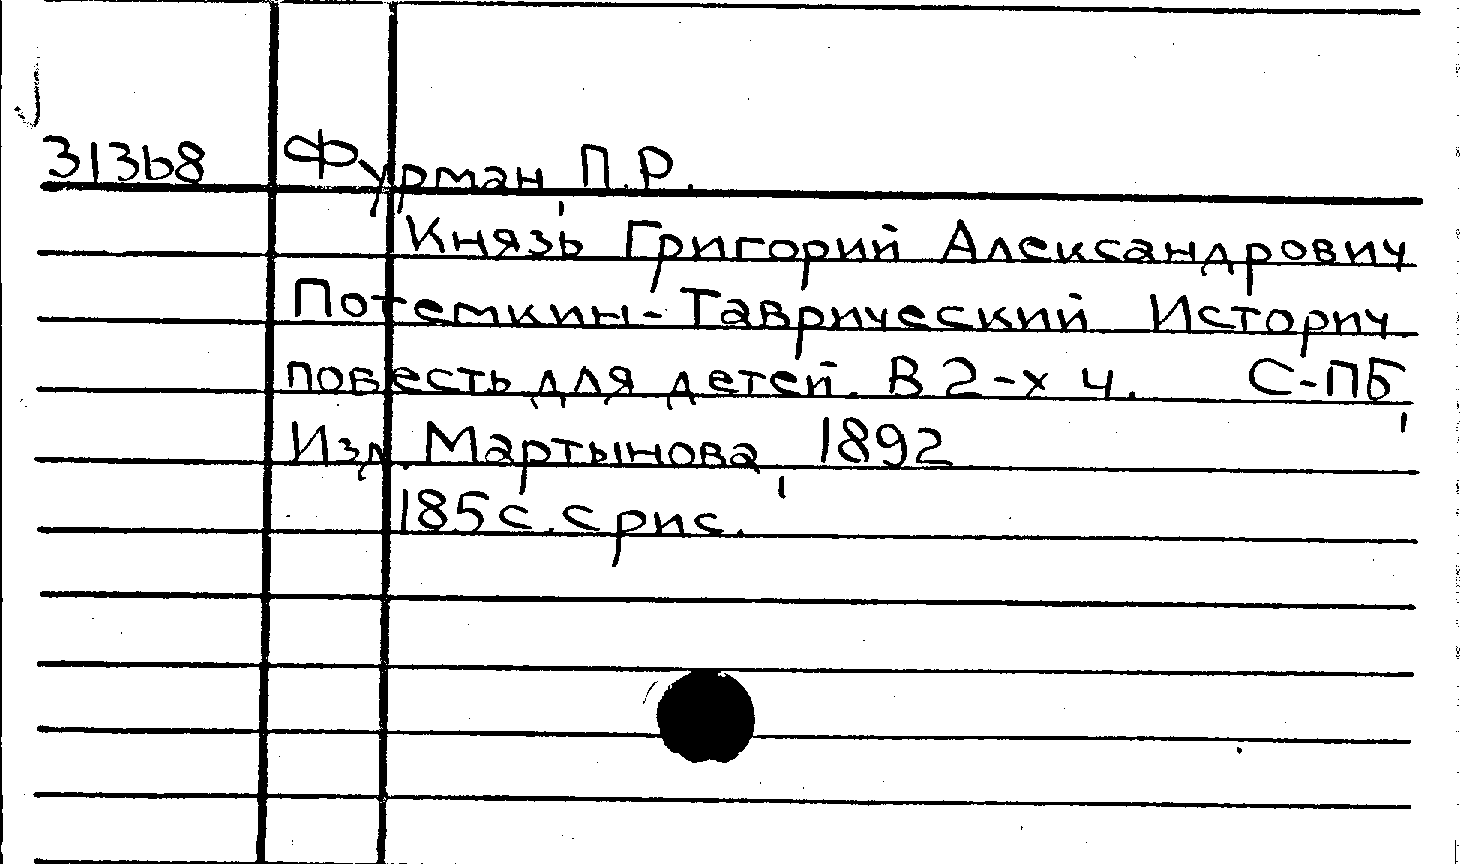 31368 Фурман, П.Р.
Князь Григорий Александрович
Потемкин-Таврический Историч.
повесть для детей. В 2-х ч. С-ПБ,
Изд. Мартынова, 1892
185 с. с рис.